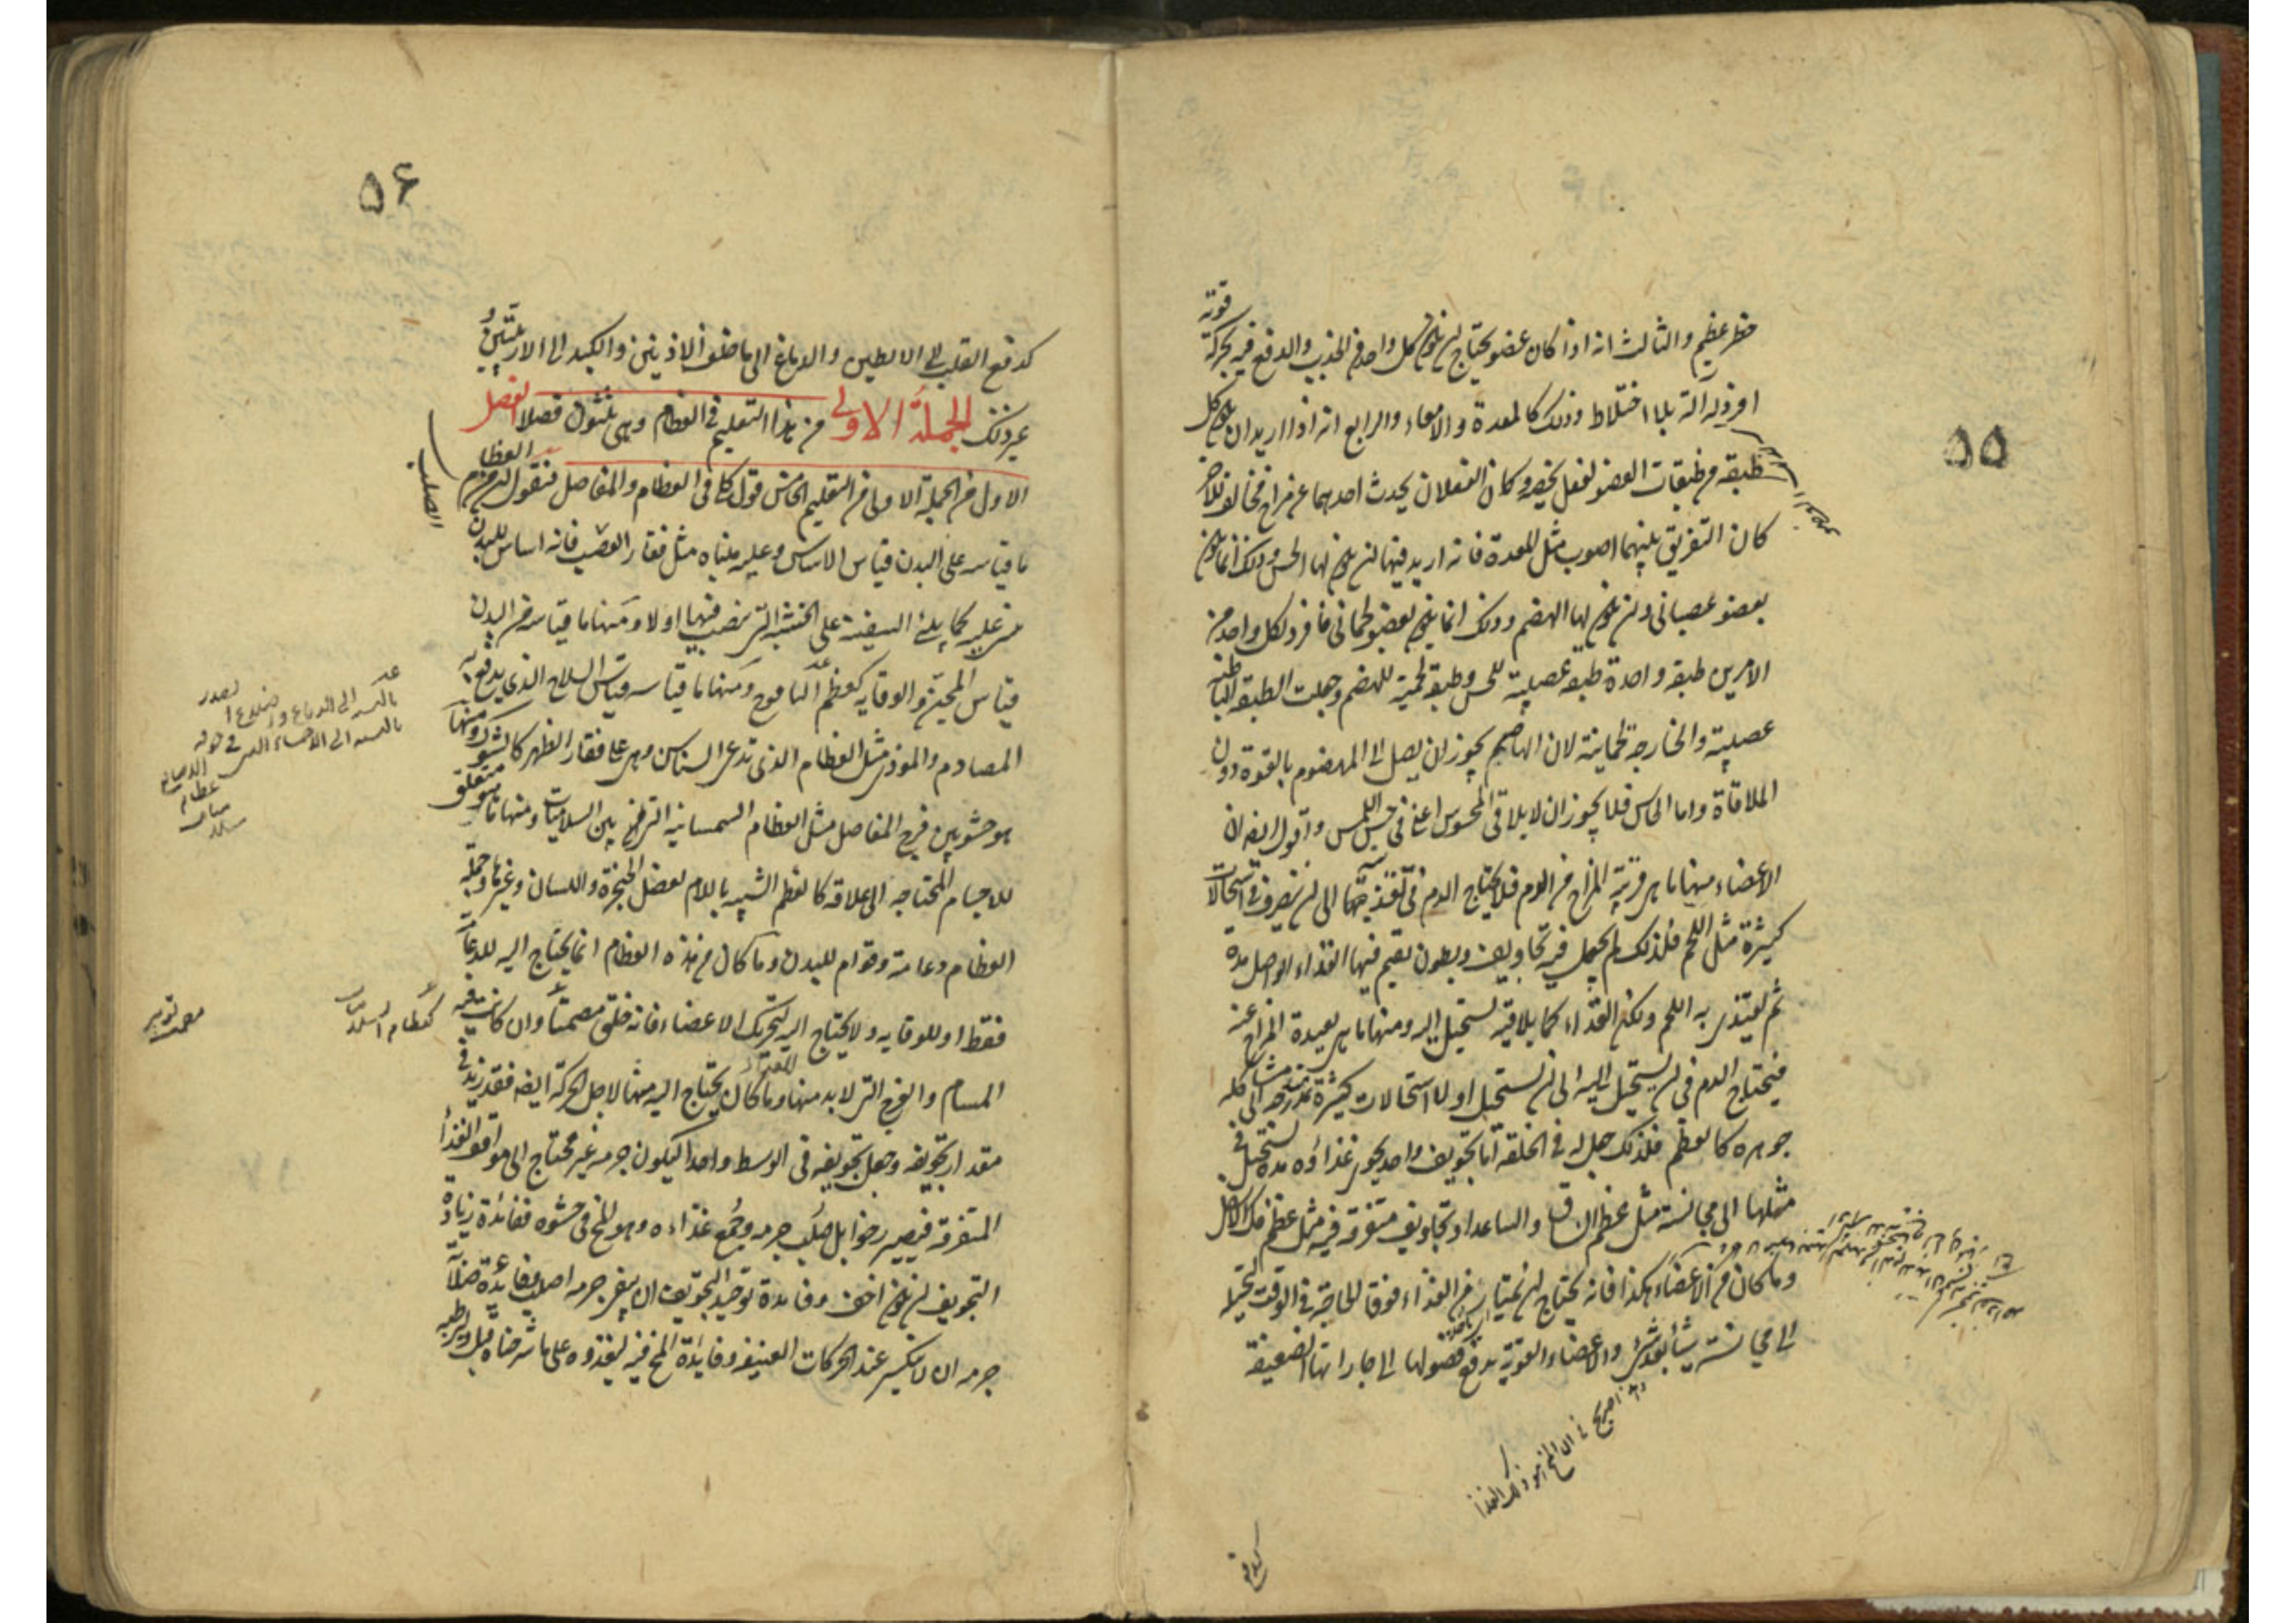 ۵۵
خطر عظيم والثالث انه اذا كان عضو يحتاج ان يكون لكل واحد من الجذب والدفع فيه بحركة قوته
افرد له آلة بلا اختلاط وذلك كالمعدة والامعاء والرابع انه اذا اريد ان يكون كل
طبقه من طبقات العضو لفعل يخصه وكان الفعلان يحدث احدهما عن مزاج مخالف للآخر
كان التفريق بينهما اصوب مثل المعدة فانه اريد فيها ان يكون لها الحس وذلك انما يكون
بعضو عصباني وان يكون لها الهضم وذلك انما يكون بعضو لحماني فافرد لكل واحد من
الامرين طبقه واحدة طبقه عصبية للحس وطبقه لحمية للهضم وجعلت الطبقه الباطنه
عصبية والخارجه لحمانية لان الهاضم يجوز ان يصل الى المهضوم بالقوة دون
الملاقاة واما الحاس فلا يجوز ان لا يلاقى المحسوس اعنى فى حس اللمس واقول ايضا ان
الاعضاء منها ما هى قريبة المزاج من الدم فلا يحتاج الدم فى تغذيتها الى ان يتصرف فى استحالات
كثيرة مثل اللحم فلذلك لم يجعل فيه تجاويف وبطون يقيم فيها الغذاء الواصل مدة
ثم يغتذى به اللحم ولكن الغذاء كما يلاقيه يستحيل اليه ومنها ما هى بعيدة المزاج عنه
فيحتاج الدم فى ان يستحيل اليه الى ان يستحيل اولا استحالات كثيرة متدرجه الى مشاكله
جوهره كالعظم فلذلك جعل له فى الخلقه اما تجويف واحد يحوى غذاؤه مدة يستحيل فى
مثلها الى مجانسته مثل عظم الساق والساعد او تجاويف متفرقه فيه مثل عظم الفك الاسفل
وما كان من الاعضاء هكذا فانه يحتاج ان يمتاز من الغذاء فوق الحاجه فى الوقت ليحيله
الى مجانسته شيئا بعد شئ والاعضاء القوية يدفع فضولها الى جاراتها الضعيفه
۵۶
كدفع القلب الى الابطين والدماغ الى ما خلف الاذنين والكبد الى الاربيتين و
غير ذلك الجملة الاولى من هذا التعليم فى العظام وهى ثلثون فصلا الفصل
الاول من الجملة الاولى من التعليم الخامس قول كلى فى العظام والمفاصل فنقول ان من العظام
ما قياسه على البدن قياس الاساس وعليه مبناه مثل فقار الصلب فانه اساس للبدن
يبنى عليه كما يبنى السفينة على الخشبة التى تنصب فيها اولا ومنها ما قياسه من البدن
قياس المجن والوقايه كعظم اليافوخ ومنها ما قياسه قياس السلاح الذى يدفع به
المصادم والموذى مثل العظام التى تدعى السناسن وهى على فقار الظهر كالشوك ومنها
هو حشو بين فرج المفاصل مثل العظام السمسمانية التى بين السلاميات ومنها ما هو متعلق
للاجسام المحتاجه الى علاقه كالعظم الشبيه باللام لعضل الحنجرة واللسان وغيرهما وجملة
العظام دعامة وقوام للبدن وما كان من هذه العظام انما يحتاج اليه للدعامة
فقط او للوقايه ولا يحتاج اليه لتحريك الاعضاء فانه خلق مصمتا وان كانت فيه
المسام والفرج التى لابد منها وما كان يحتاج اليه منها لاجل الحركة ايضا فقد زيد فى
مقدار تجويفه وجعل تجويفه فى الوسط واحدا ليكون جرمه غير محتاج الى مواقع الغذاء
المتفرقه فيصير رخوا بل صلب جرمه وجمع غذاءه وهو المخ فى حشوه ففائدة زيادة
التجويف ان يكون اخف وفايدة توحيد التجويف ان يبقى جرمه اصلب وفائدة صلابة
جرمه ان لا ينكسر عند الحركات العنيفه وفايدة المخ فيه ليغذوه على ما شرحناه قبل وليرطبه
الصلب